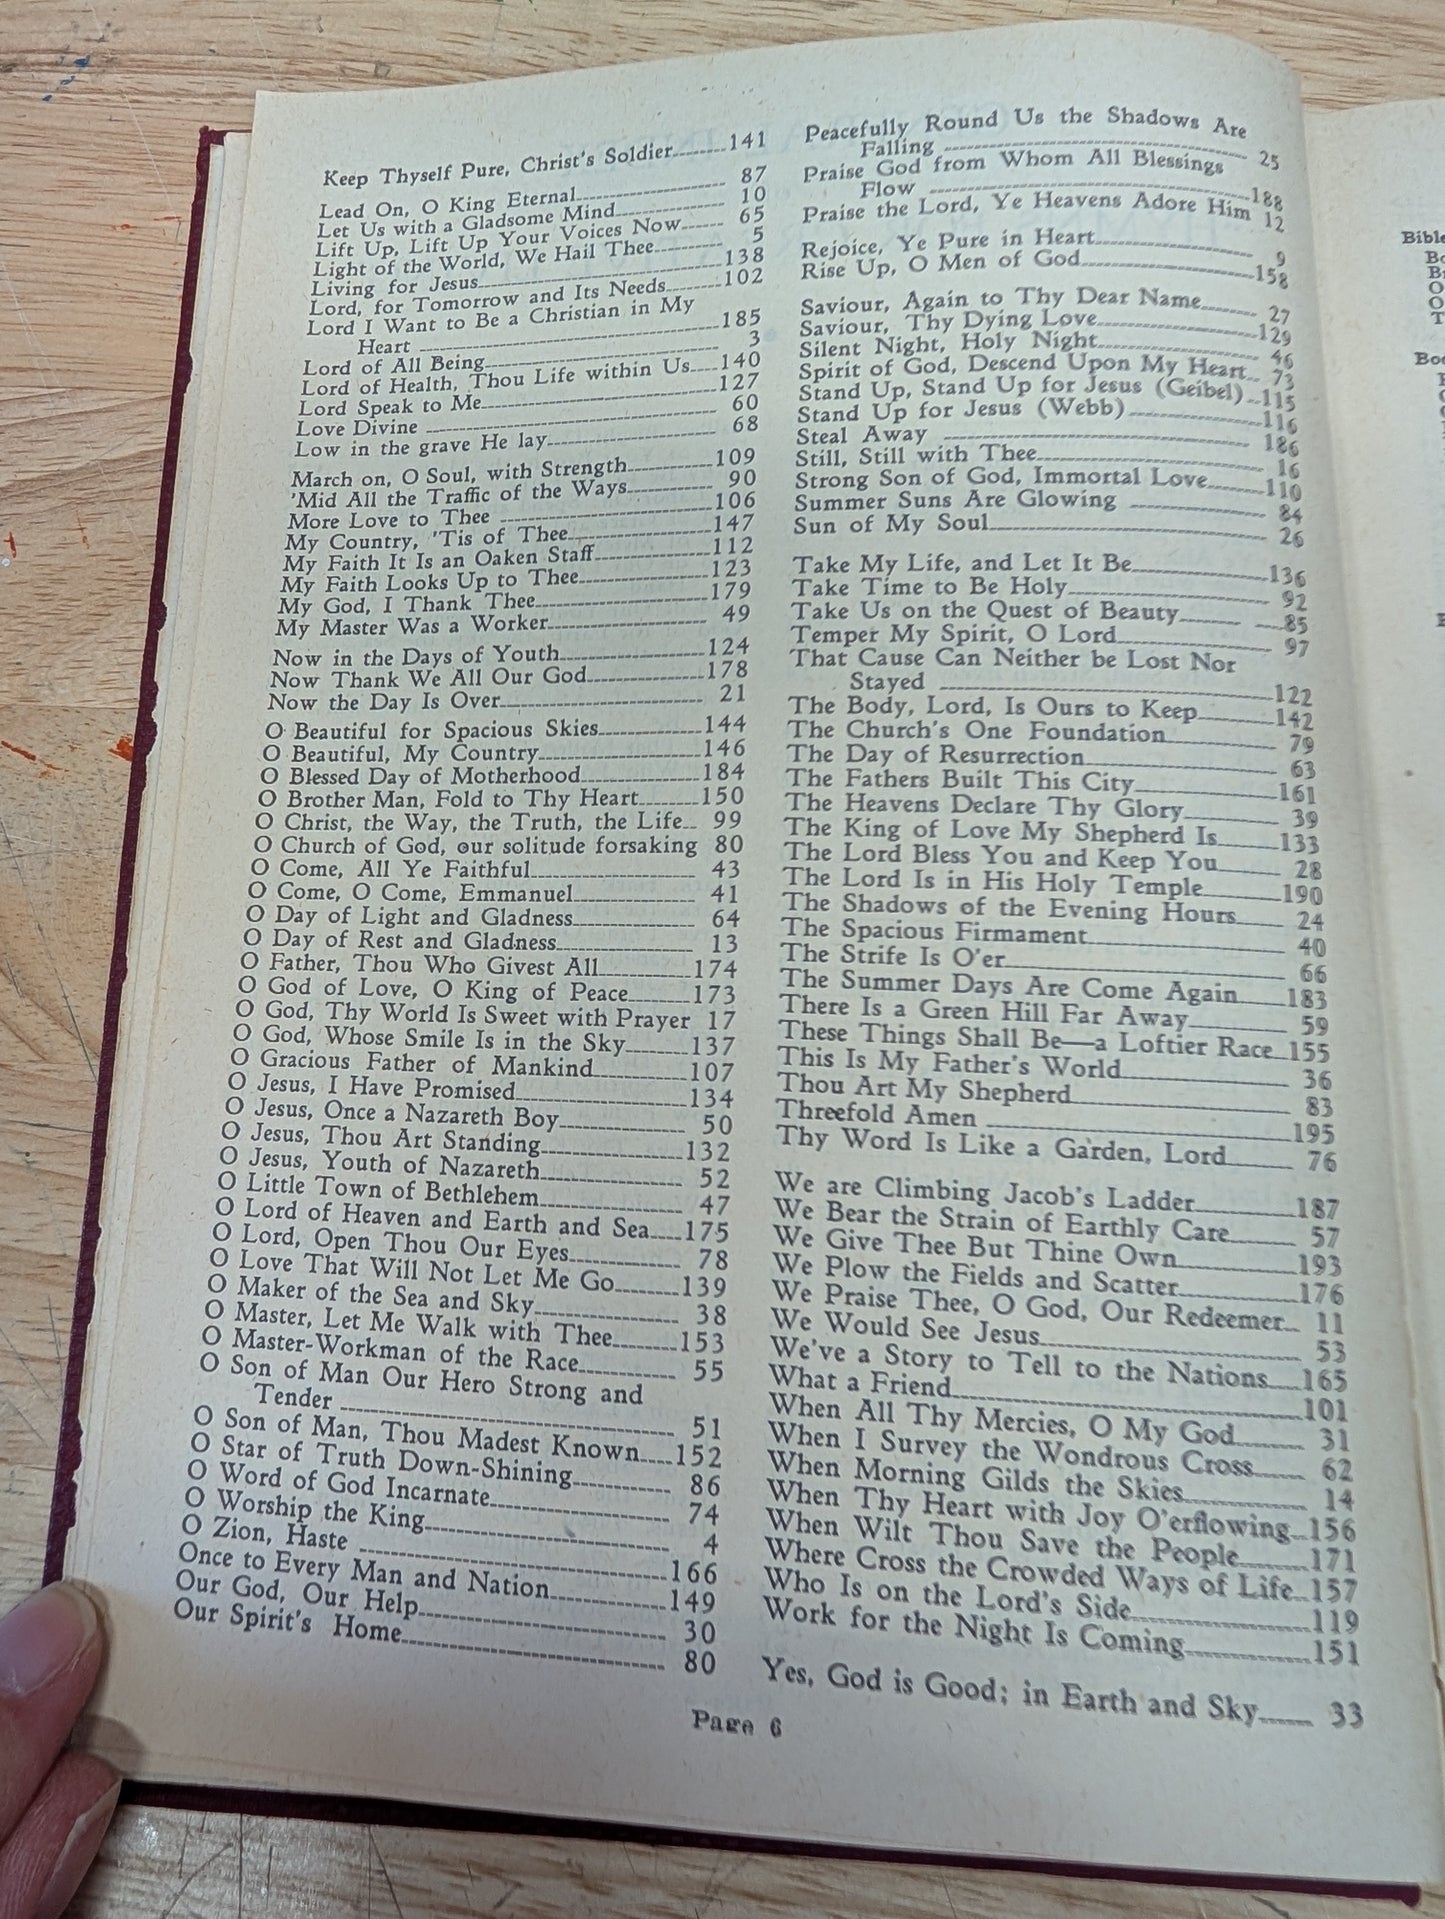 Keep Thyself Pure, Christ's Soldier 141
Lead On, O King Eternal 87
Let Us with a Gladsome Mind 10
Lift Up, Lift Up Your Voices Now 65
Light of the World, We Hail Thee 5
Living for Jesus 138
Lord, for Tomorrow and Its Needs 102
Lord I Want to Be a Christian in My
Heart 185
Lord of All Being 3
Lord of Health, Thou Life within Us 140
Lord Speak to Me 127
Love Divine 60
Low in the grave He lay 68
March on, O Soul, with Strength 109
'Mid All the Traffic of the Ways 90
More Love to Thee 106
My Country, 'Tis of Thee 147
My Faith It Is an Oaken Staff 112
My Faith Looks Up to Thee 123
My God, I Thank Thee 179
My Master Was a Worker 49
Now in the Days of Youth 124
Now Thank We All Our God 178
Now the Day Is Over 21
O Beautiful for Spacious Skies 144
O Beautiful, My Country 146
O Blessed Day of Motherhood 184
O Brother Man, Fold to Thy Heart 150
O Christ, the Way, the Truth, the Life 99
O Church of God, our solitude forsaking 80
O Come, All Ye Faithful 43
O Come, O Come, Emmanuel 41
O Day of Light and Gladness 64
O Day of Rest and Gladness 13
O Father, Thou Who Givest All 174
O God of Love, O King of Peace 173
O God, Thy World Is Sweet with Prayer 17
O God, Whose Smile Is in the Sky 137
O Gracious Father of Mankind 107
O Jesus, I Have Promised 134
O Jesus, Once a Nazareth Boy 50
O Jesus, Thou Art Standing 132
O Jesus, Youth of Nazareth 52
O Little Town of Bethlehem 47
O Lord of Heaven and Earth and Sea 175
O Lord, Open Thou Our Eyes 78
O Love That Will Not Let Me Go 139
O Maker of the Sea and Sky 38
O Master, Let Me Walk with Thee 153
O Master-Workman of the Race 55
O Son of Man Our Hero Strong and
Tender 51
O Son of Man, Thou Madest Known 152
O Star of Truth Down-Shining 86
O Word of God Incarnate 74
O Worship the King 4
O Zion, Haste 166
Once to Every Man and Nation 149
Our God, Our Help 30
Our Spirit's Home 80
Peacefully Round Us the Shadows Are
Falling 25
Praise God from Whom All Blessings
Flow 188
Praise the Lord, Ye Heavens Adore Him 12
Rejoice, Ye Pure in Heart 9
Rise Up, O Men of God 158
Saviour, Again to Thy Dear Name 27
Saviour, Thy Dying Love 129
Silent Night, Holy Night 46
Spirit of God, Descend Upon My Heart 73
Stand Up, Stand Up for Jesus (Geibel) 115
Stand Up for Jesus (Webb) 116
Steal Away 186
Still, Still with Thee 16
Strong Son of God, Immortal Love 110
Summer Suns Are Glowing 84
Sun of My Soul 26
Take My Life, and Let It Be 136
Take Time to Be Holy 92
Take Us on the Quest of Beauty 85
Temper My Spirit, O Lord 97
That Cause Can Neither be Lost Nor
Stayed 122
The Body, Lord, Is Ours to Keep 142
The Church's One Foundation 79
The Day of Resurrection 63
The Fathers Built This City 161
The Heavens Declare Thy Glory 39
The King of Love My Shepherd Is 133
The Lord Bless You and Keep You 28
The Lord Is in His Holy Temple 190
The Shadows of the Evening Hours 24
The Spacious Firmament 40
The Strife Is O'er 66
The Summer Days Are Come Again 183
There Is a Green Hill Far Away 59
These Things Shall Be—a Loftier Race 155
This Is My Father's World 36
Thou Art My Shepherd 83
Threefold Amen 195
Thy Word Is Like a Garden, Lord 76
We are Climbing Jacob's Ladder 187
We Bear the Strain of Earthly Care 57
We Give Thee But Thine Own 193
We Plow the Fields and Scatter 176
We Praise Thee, O God, Our Redeemer 11
We Would See Jesus 53
We've a Story to Tell to the Nations 165
What a Friend 101
When All Thy Mercies, O My God 31
When I Survey the Wondrous Cross 62
When Morning Gilds the Skies 14
When Thy Heart with Joy O'erflowing 156
When Wilt Thou Save the People 171
Where Cross the Crowded Ways of Life 157
Who Is on the Lord's Side 119
Work for the Night Is Coming 151
Yes, God is Good; in Earth and Sky 33
Page 6